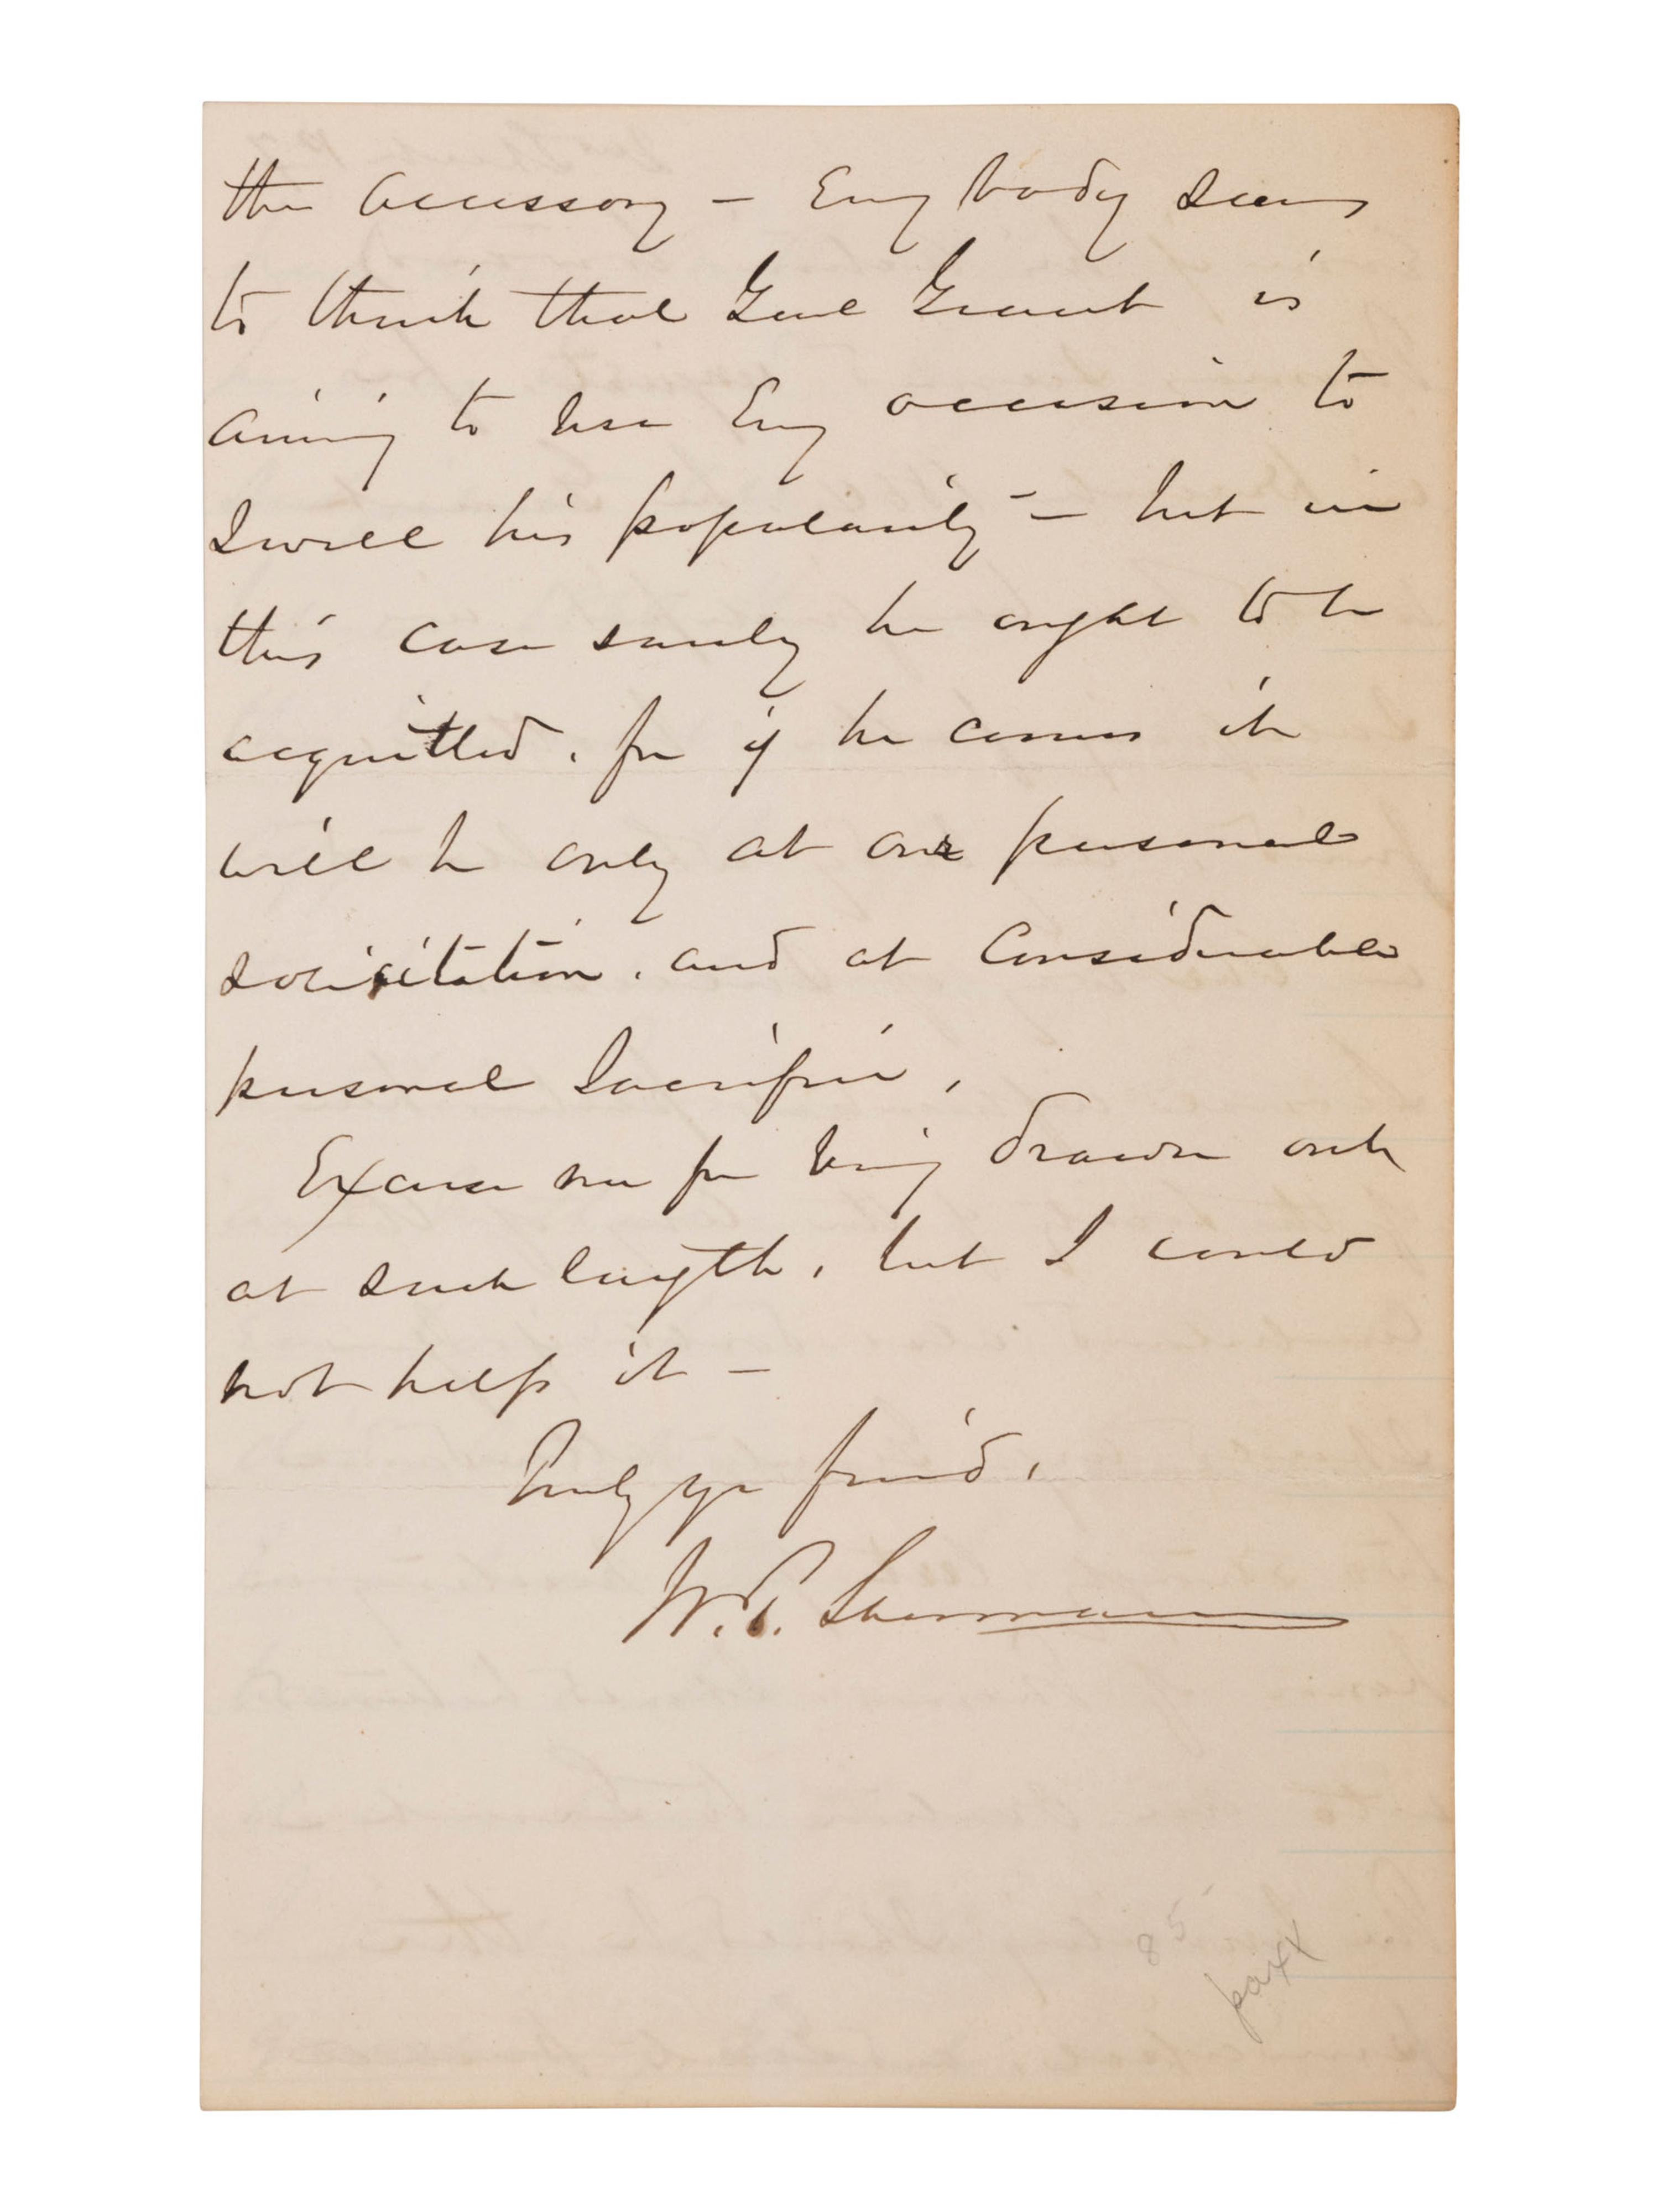 the accessory - Every body seems
to think that Genl Grant is
aiming to use Every occasion to
swell his popularity - but in
this case surely he ought to be
acquitted. for if he comes it
will be only at our personal
solicitation, and at Considerable
personal Sacrifice,
Excuse me for being drawn out
at such length, but I could
not help it -
Truly yr friend,
W. T. Sherman
85